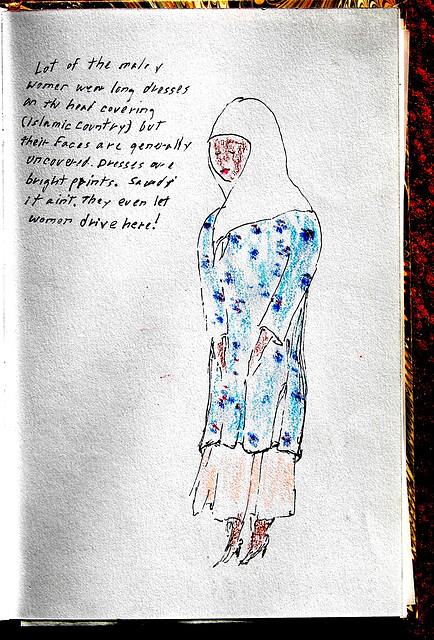 Lot of the malay
women wear long dresses
an the head covering
(Islamic Country) but
their faces are generally
uncovered. Dresses are
bright prints. Saudi
it ain't. They even let
women drive here!